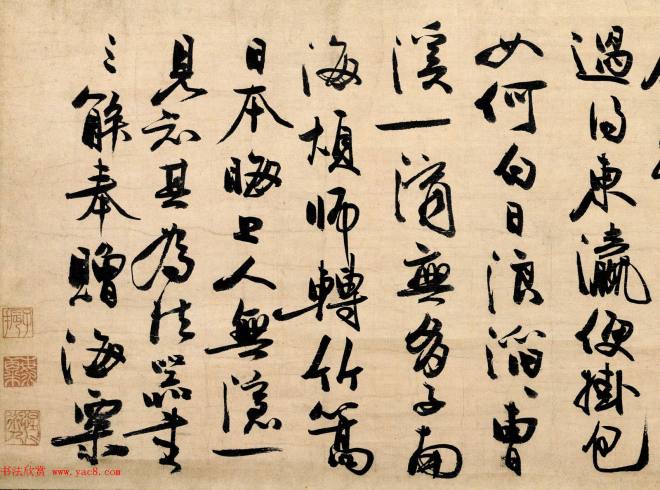 過得東瀛便掛包
如何白日浪滔〻曹
溪一滴無多子南
海煩師轉竹篙
日本晦上人無隱一
見知其為法器書
三解奉贈海粟
书法欣赏 www.yac8.com